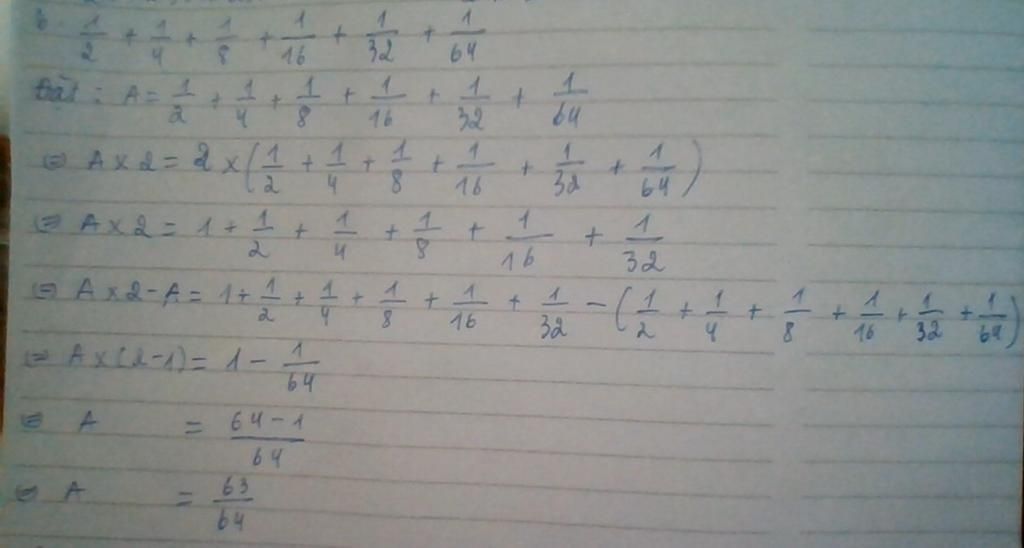 b. 1/2 + 1/4 + 1/8 + 1/16 + 1/32 + 1/64
Đặt : A = 1/2 + 1/4 + 1/8 + 1/16 + 1/32 + 1/64
⇒ A x 2 = 2 x (1/2 + 1/4 + 1/8 + 1/16 + 1/32 + 1/64)
⇒ A x 2 = 1 + 1/2 + 1/4 + 1/8 + 1/16 + 1/32
⇒ A x 2 - A = 1 + 1/2 + 1/4 + 1/8 + 1/16 + 1/32 - (1/2 + 1/4 + 1/8 + 1/16 + 1/32 + 1/64)
⇒ A x (2 - 1) = 1 - 1/64
⇒ A = (64 - 1)/64
⇒ A = 63/64